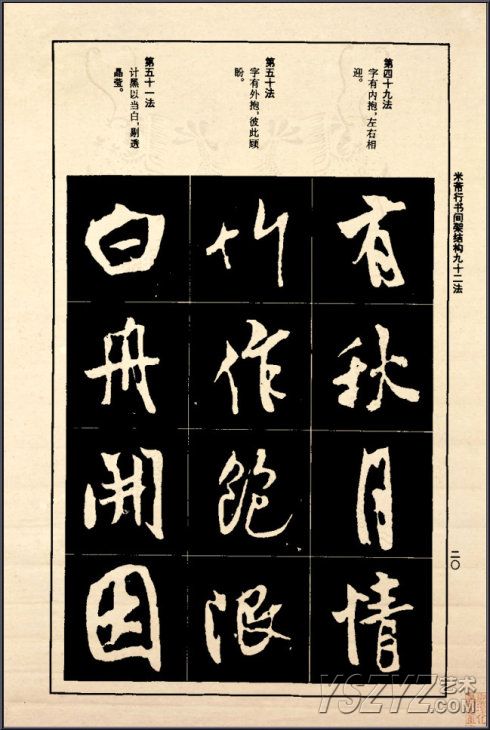 米芾行书间架结构九十二法
二〇
第四十九法
字有内抱，左右相
迎。
第五十法
字有外抱，彼此顾
盼。
第五十一法
计黑以当白，剔透
晶莹。
有秋月情
竹作飽
白舟開因
YSZYZ艺术.com